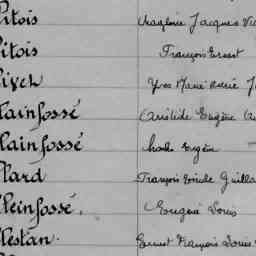 Pitois Jacques
Pitois François Ernest
Yves Marie René
lainfossé Aristide Eugène
lainfossé Eugène
llard François Emile
lleinfossé. Eugène Louis
llestan. Ernest François Louis